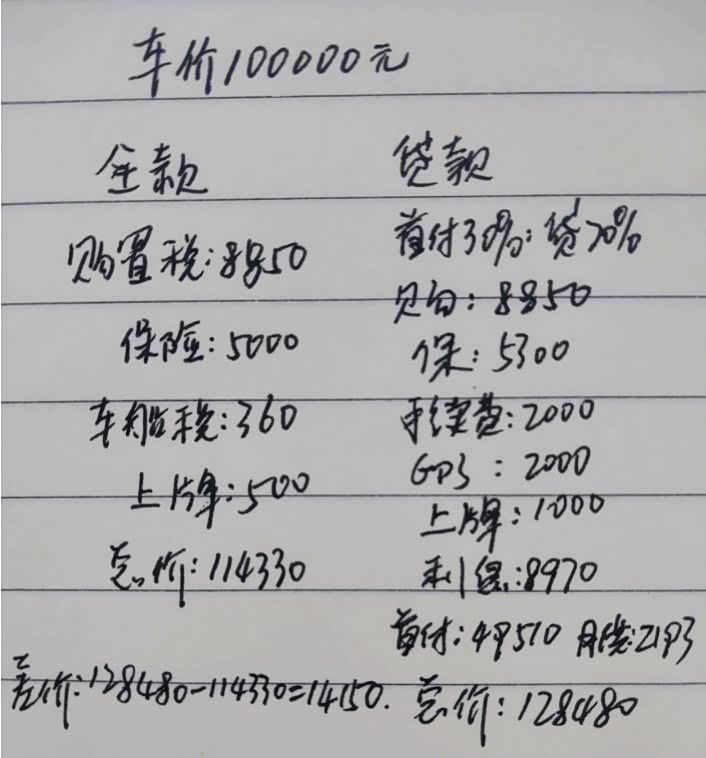 车价100000元
全款
购置税:8850
保险:5000
车船税:360
上牌:500
总价:114330
贷款
首付30%:贷70%
购:8850
保:5300
手续费:2000
GPS:2000
上牌:1000
利息:8970
首付:49510 月供:2193
总价:128480
差价:128480-114330=14150.